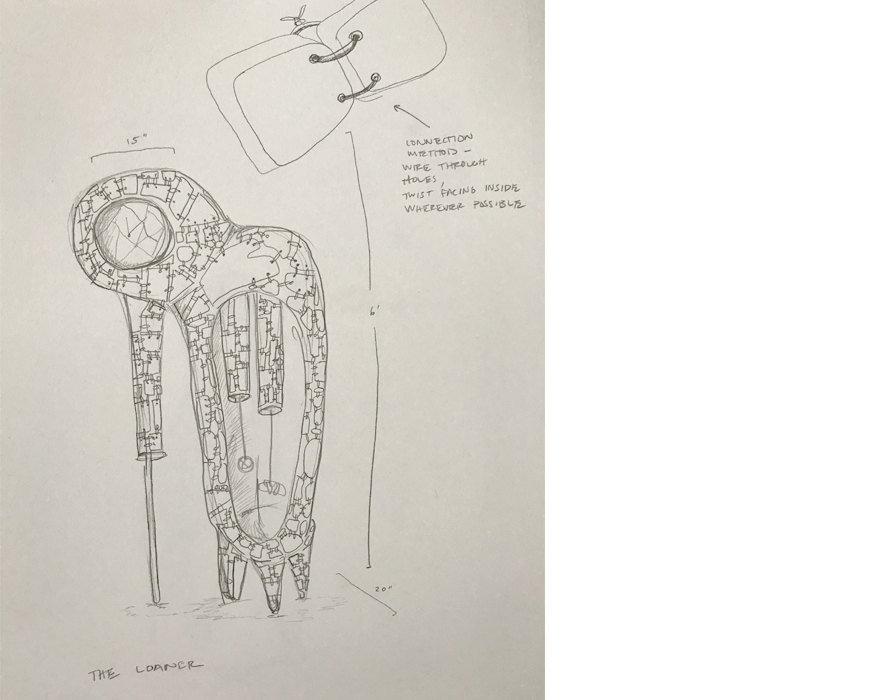 15"
CONNECTION
METHOD -
WIRE THROUGH
HOLES,
TWIST FACING INSIDE
WHEREVER POSSIBLE
6'
20"
THE LOANER